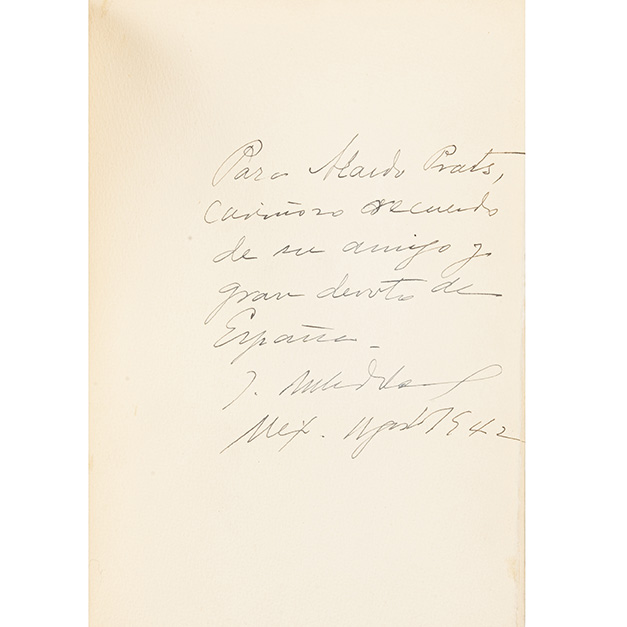 Para Alardo Prats,
cariñoso recuerdo
de su amigo y
gran devoto de
España.
J.
Méx. Agosto 1942